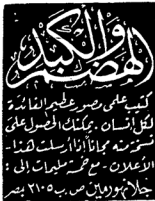 الهضم والكبد
كتيب علمى مصور عظيم الفائدة
لكل انسان . يمكنك الحصول على
نسخة منه مجاناً اذا ارسلت هذا
الاعلان - مع خمسة مليمات إلى :
جلانهورماين ص . ب ٢١٠٥ بمصر